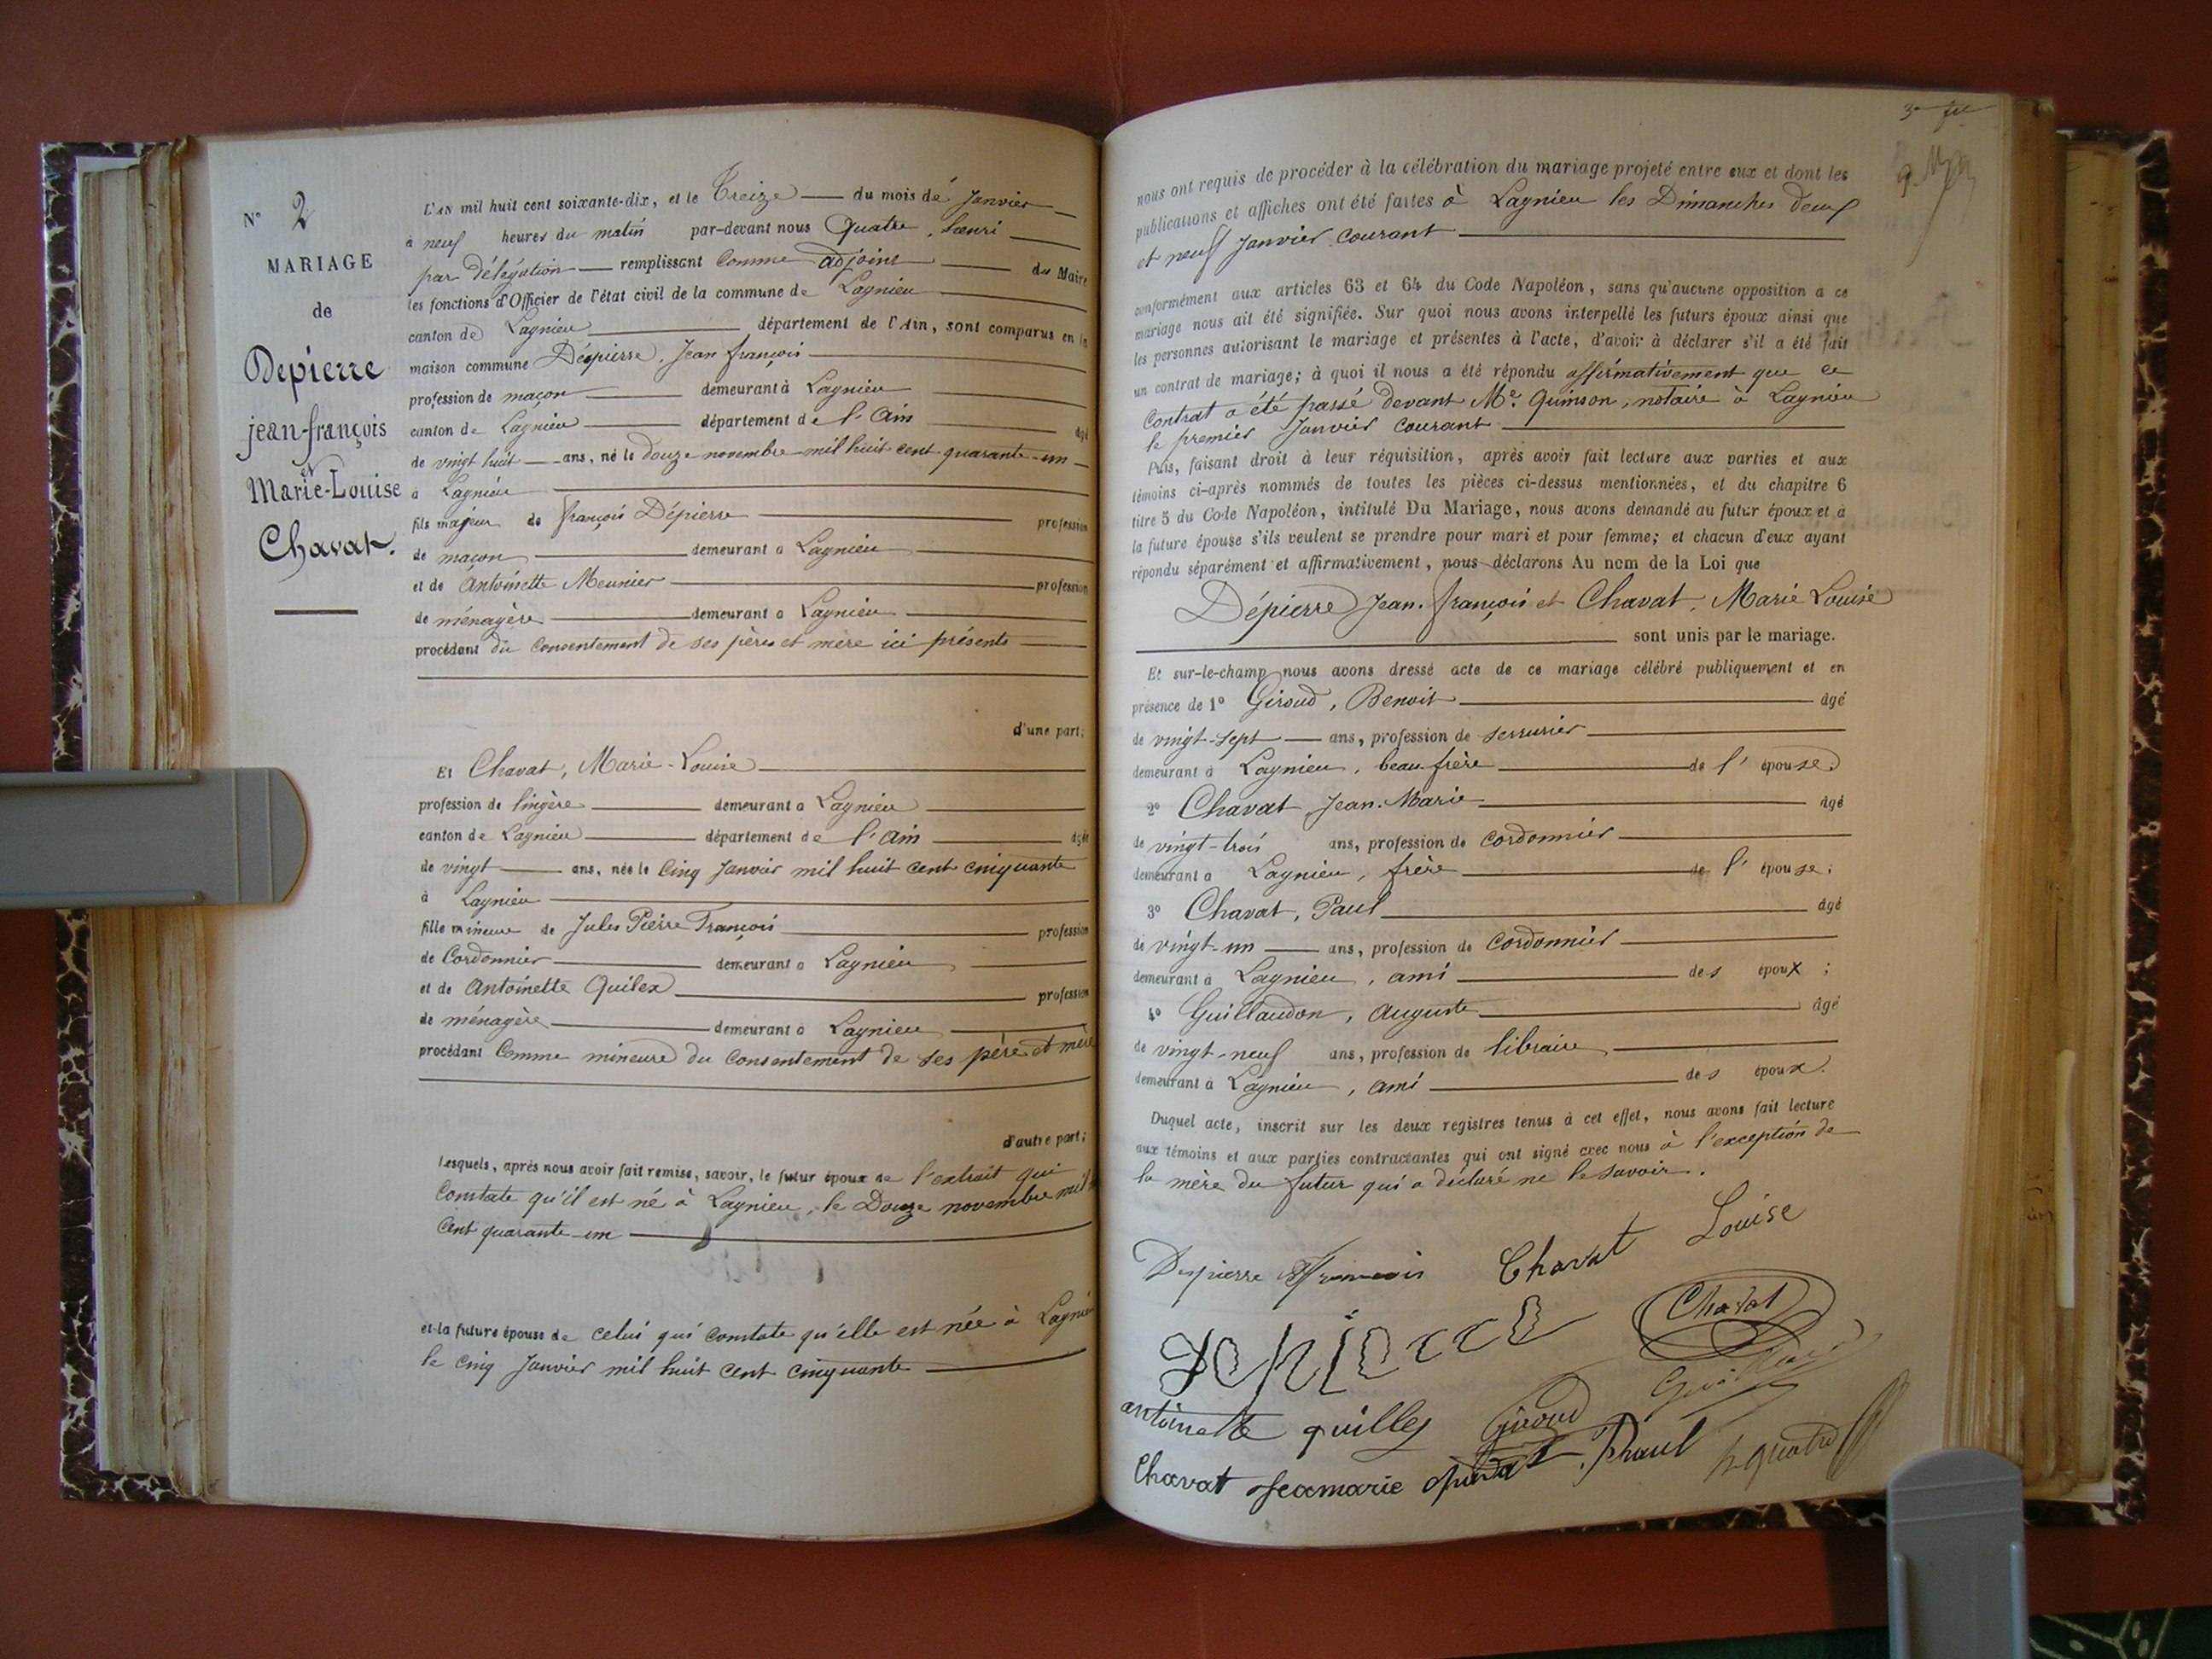 N° 2
MARIAGE
de
Depierre
jean-françois
et
Marie-Louise
Chavat.
L'AN mil huit cent soixante-dix, et le Treize du mois de Janvier
à neuf heures du matin par-devant nous Quatre, henri
par délégation remplissant comme adjoint du Maire
les fonctions d'Officier de l'état civil de la commune de Lagnieu
canton de Lagnieu département de l'Ain, sont comparus en la
maison commune Dépierre, Jean françois
profession de maçon demeurant à Lagnieu
canton de Lagnieu département de l'Ain âgé
de vingt huit ans, né le douze novembre mil huit cent quarante-un
à Lagnieu
fils majeur de françois Dépierre profession
de maçon demeurant à Lagnieu
et de Antoinette Meunier profession
de ménagère demeurant à Lagnieu
procédant du consentement de ses pères et mère ici présents
d'une part;
Et Chavat, Marie-Louise
profession de lingère demeurant à Lagnieu
canton de Lagnieu département de l'Ain âgée
de vingt ans, née le Cinq Janvier mil huit cent cinquante
à Lagnieu
fille mineure de Jules Pierre François profession
de Cordonnier demeurant à Lagnieu
et de Antoinette Quilex profession
de ménagère demeurant à Lagnieu
procédant Comme mineure du consentement de ses père et mère
d'autre part;
Lesquels, après nous avoir fait remise, savoir, le futur époux de l'extrait qui
Constate qu'il est né à Lagnieu, le Douze novembre mil
Cent quarante-un
et la future épouse de celui qui constate qu'elle est née à Lagnieu
le cinq Janvier mil huit cent cinquante
3e
nous ont requis de procéder à la célébration du mariage projeté entre eux et dont les
publications et affiches ont été faites à Lagnieu les Dimanches deux
et neuf Janvier courant
conformément aux articles 63 et 64 du Code Napoléon, sans qu'aucune opposition a ce
mariage nous ait été signifiée. Sur quoi nous avons interpellé les futurs époux ainsi que
les personnes autorisant le mariage et présentes à l'acte, d'avoir à déclarer s'il a été fait
un contrat de mariage; à quoi il nous a été répondu affirmativement que ce
Contrat a été passé devant Me. Quinson, notaire à Lagnieu
le premier Janvier courant
Puis, faisant droit à leur réquisition, après avoir fait lecture aux parties et aux
témoins ci-après nommés de toutes les pièces ci-dessus mentionnées, et du chapitre 6
titre 5 du Code Napoléon, intitulé Du Mariage, nous avons demandé au futur époux et à
la future épouse s'ils veulent se prendre pour mari et pour femme; et chacun d'eux ayant
répondu séparément et affirmativement, nous déclarons Au nom de la Loi que
Dépierre Jean-françois et Chavat, Marie Louise
sont unis par le mariage.
Et sur-le-champ nous avons dressé acte de ce mariage célébré publiquement et en
présence de 1° Giroud, Benoit âgé
de vingt-sept ans, profession de serrurier
demeurant à Lagnieu, beau-frère de l'épouse;
2° Chavat, Jean-Marie âgé
de vingt-trois ans, profession de cordonnier
demeurant à Lagnieu, frère de l'épouse;
3° Chavat, Paul âgé
de vingt-un ans, profession de cordonnier
demeurant à Lagnieu, ami des époux;
4° Guillaudon, Auguste âgé
de vingt-neuf ans, profession de libraire
demeurant à Lagnieu, ami des époux.
Duquel acte, inscrit sur les deux registres tenus à cet effet, nous avons fait lecture
aux témoins et aux parties contractantes qui ont signé avec nous à l'exception de
la mère du futur qui a déclaré ne le savoir.
Depierre francois Chavat Louise
Depierre Chavat
antoinette quilles Giroud
Chavat Jeamarie Chavat Phaul h quatre